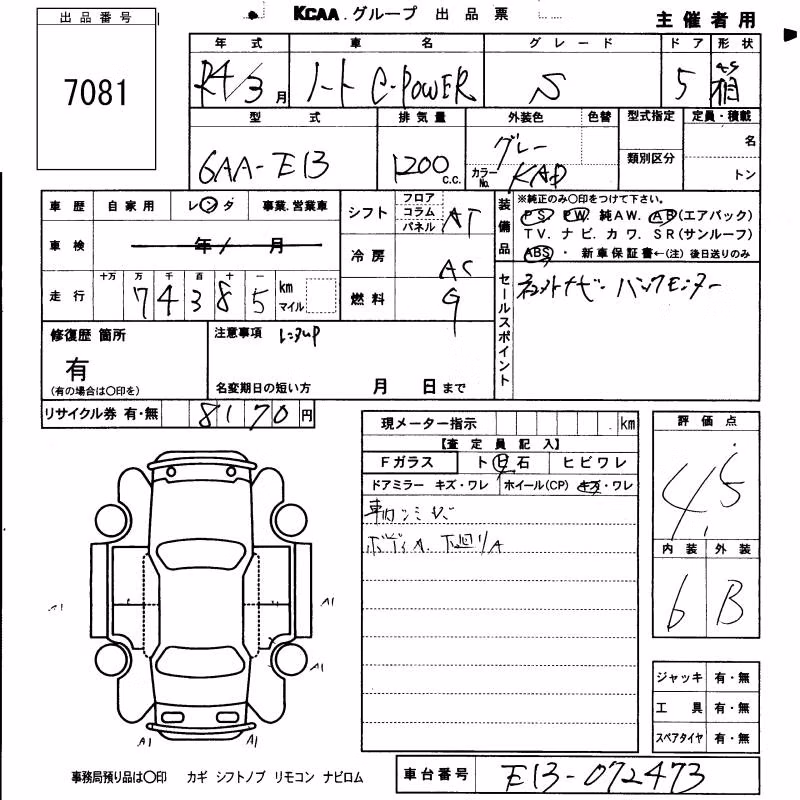 出品番号
7081
KCAA.グループ 出品票
主催者用
年式 車名 グレード ドア 形状
R4/3月 ノート e-POWER S 5 箱
型式 排気量 外装色 色替 型式指定 定員・積載
6AA-E13 1200 c.c. グレー カラーNo. KAD 類別区分 名
トン
車歴 自家用 レンタ 事業.営業車
車検 年 月
走行 十万 万 千 百 十 一
74385 km マイル
シフト フロア コラム パネル AT
冷房 AC
燃料 G
装備品
※純正のみ○印をつけて下さい。
PS PW 純AW. AB(エアバック)
TV. ナビ. カワ. SR(サンルーフ)
ABS ・ 新車保証書←(注) 後日送りのみ
セールスポイント
ナビ バックモニター
修復歴 箇所
有
(有の場合は○印を)
注意事項 レンタUP
名変期日の短い方 月 日まで
リサイクル券 有・無 8170円
現メーター指示 km
【査定員記入】
Fガラス ト 日 石 ヒビワレ
ドアミラー キズ・ワレ ホイール(CP) キズ・ワレ
ボディA. 下廻りA
評価点
4.5
内装 外装
6 B
A1 A1
A1
A1 A1
ジャッキ 有・無
工具 有・無
スペアタイヤ 有・無
事務局預り品は○印 カギ シフトノブ リモコン ナビロム
車台番号 E13-072473